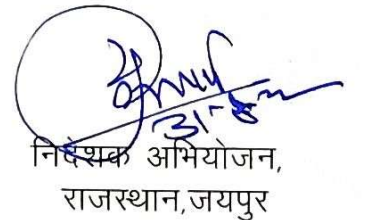 निदेशक अभियोजन,
राजस्थान,जयपुर